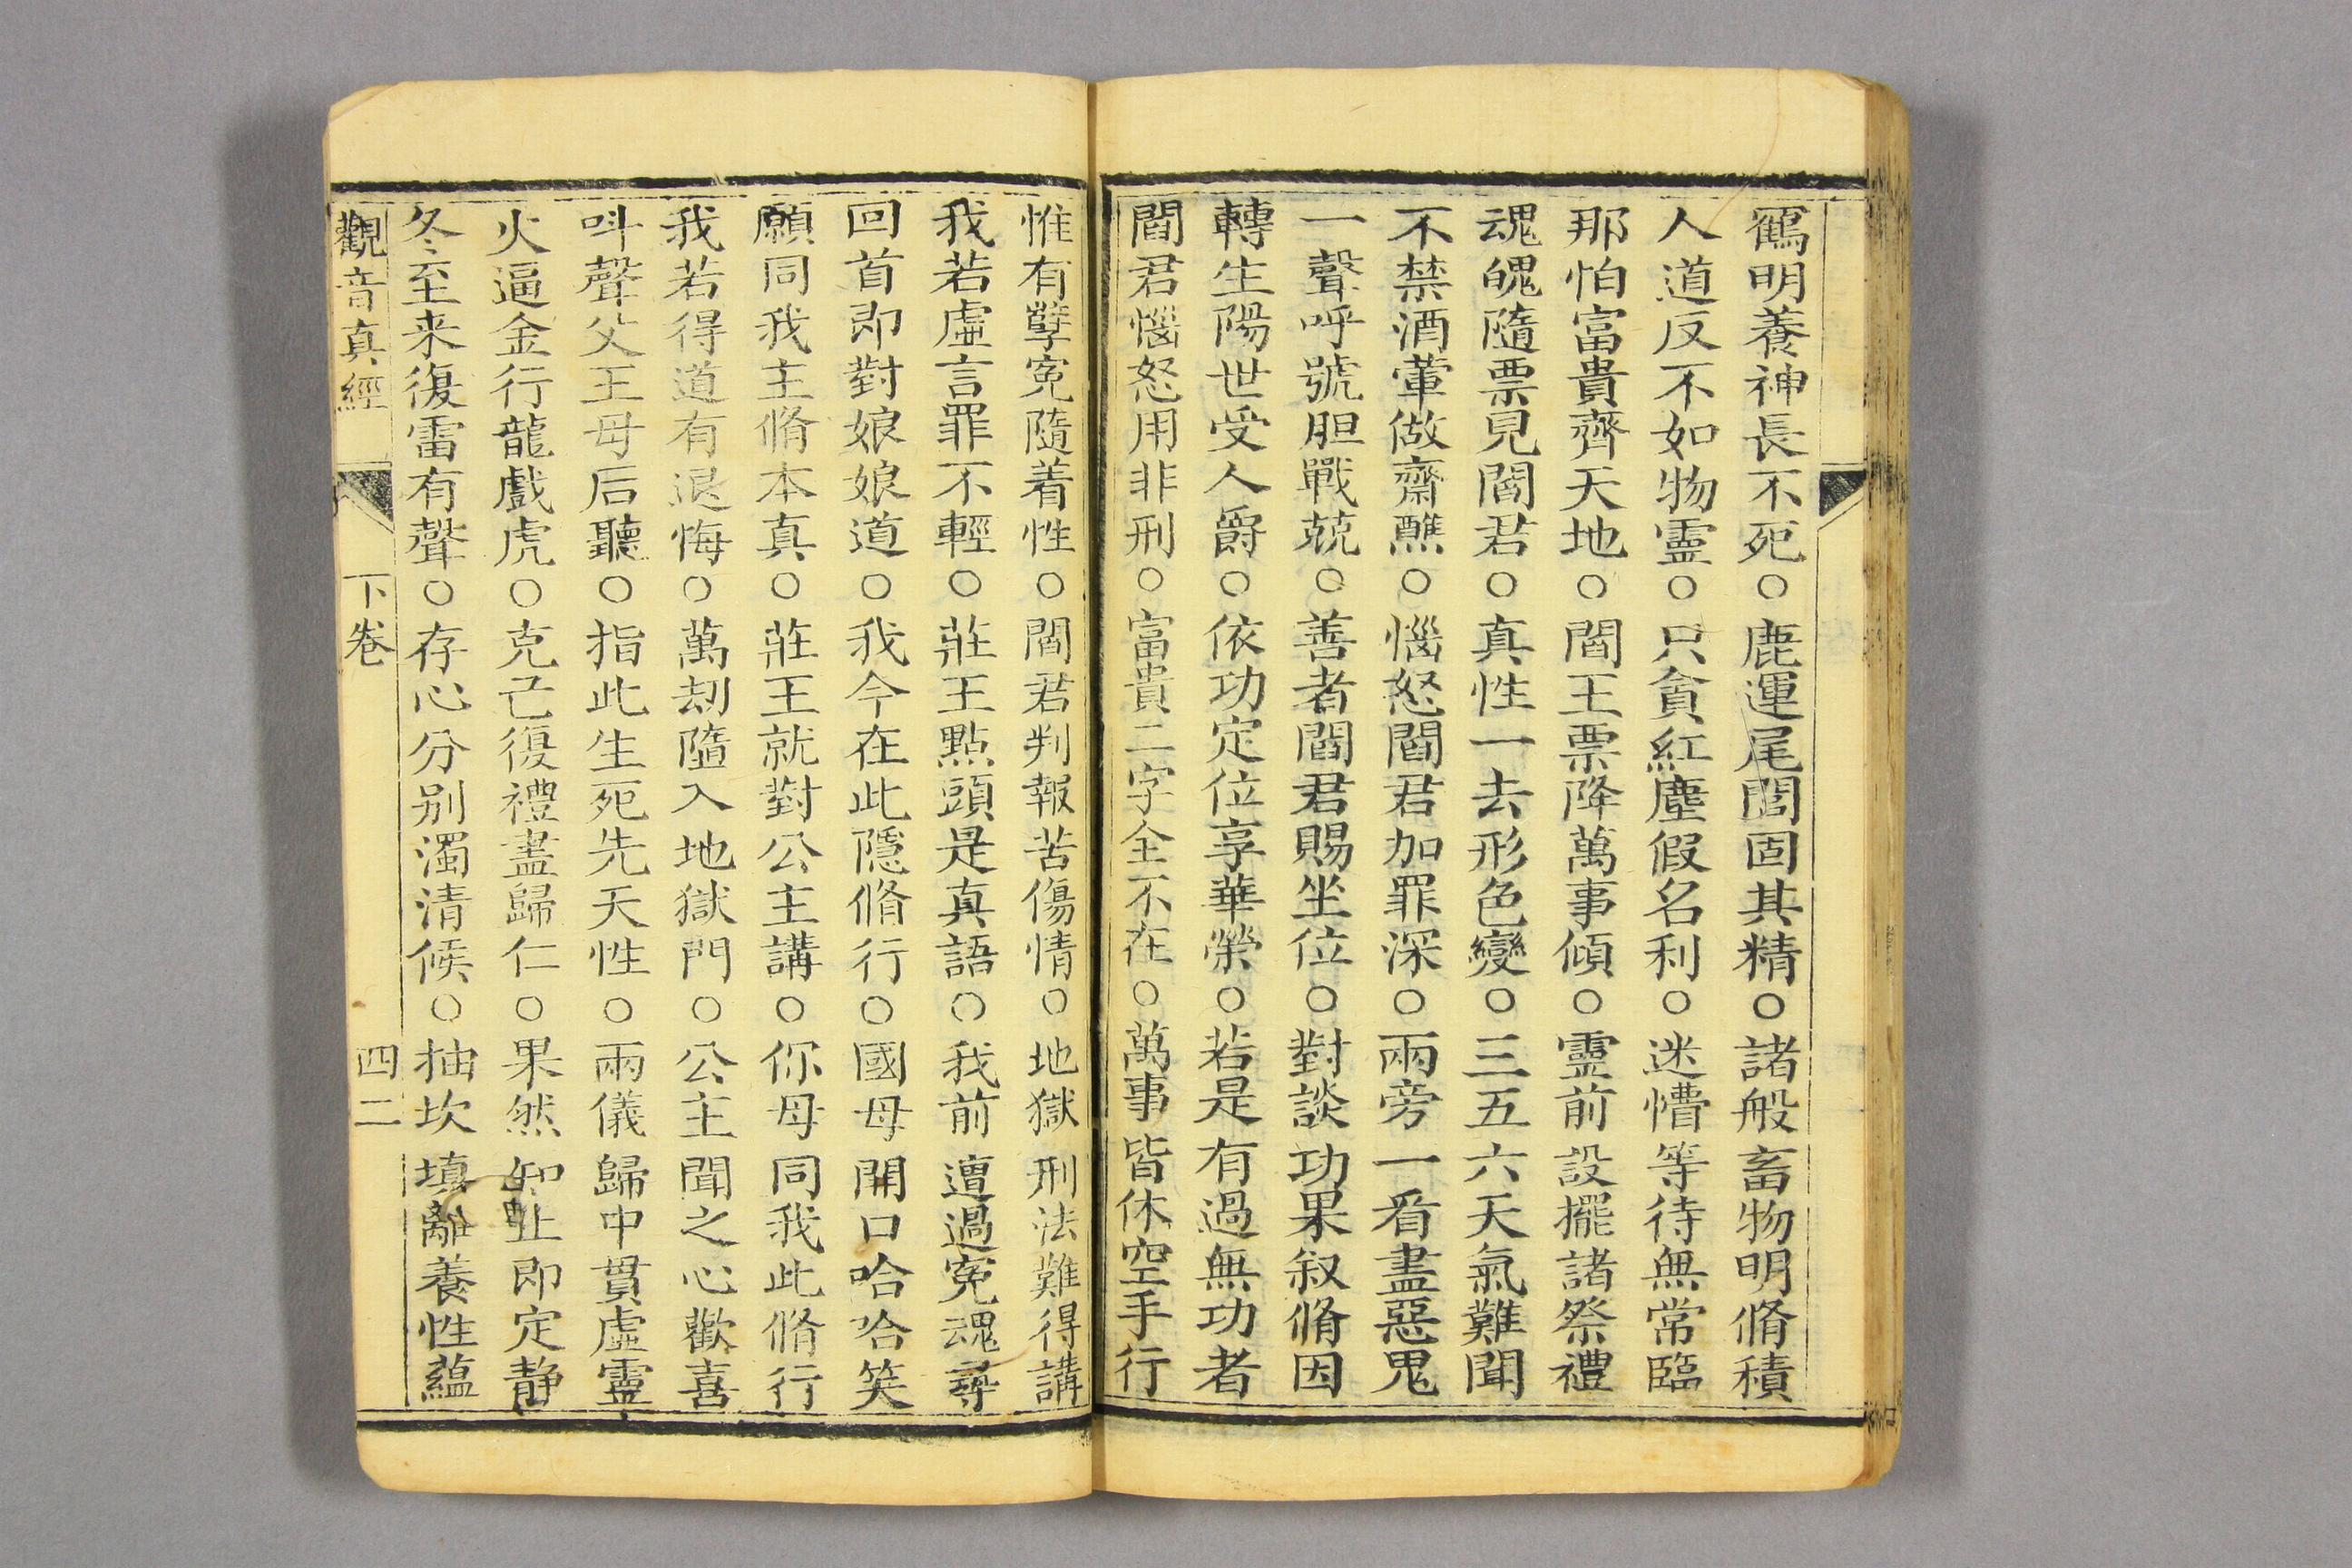 鶴明養神長不死○鹿運尾閭固其精○諸般畜物明脩積
人道反不如物靈○只貪紅塵假名利○迷懵等待無常臨
那怕富貴齊天地○閻王票降萬事傾○靈前設擺諸祭禮
魂魄隨票見閻君○真性一去形色變○三五六天氣難聞
不禁酒葷做齋醮○惱怒閻君加罪深○兩旁一看盡惡鬼
一聲呼號胆戰兢○善者閻君賜坐位○對談功果叙脩因
轉生陽世受人爵○依功定位享華榮○若是有過無功者
閻君惱怒用非刑○富貴二字全不在○萬事皆休空手行
惟有孽冤隨着性○閻君判報苦傷情○地獄刑法難得講
我若虛言罪不輕○莊王點頭是真語○我前遭過冤魂尋
回首即對娘娘道○我今在此隱脩行○國母開口哈哈笑
願同我主脩本真○莊王就對公主講○你母同我此脩行
我若得道有退悔○萬刼隨入地獄門○公主聞之心歡喜
呌聲父王母后聽○指此生死先天性○兩儀歸中貫虛靈
火逼金行龍戲虎○克己復禮盡歸仁○果然知止即定静
冬至来復雷有聲○存心分别濁清候○抽坎填離養性蘊
觀音真經 下卷 四二